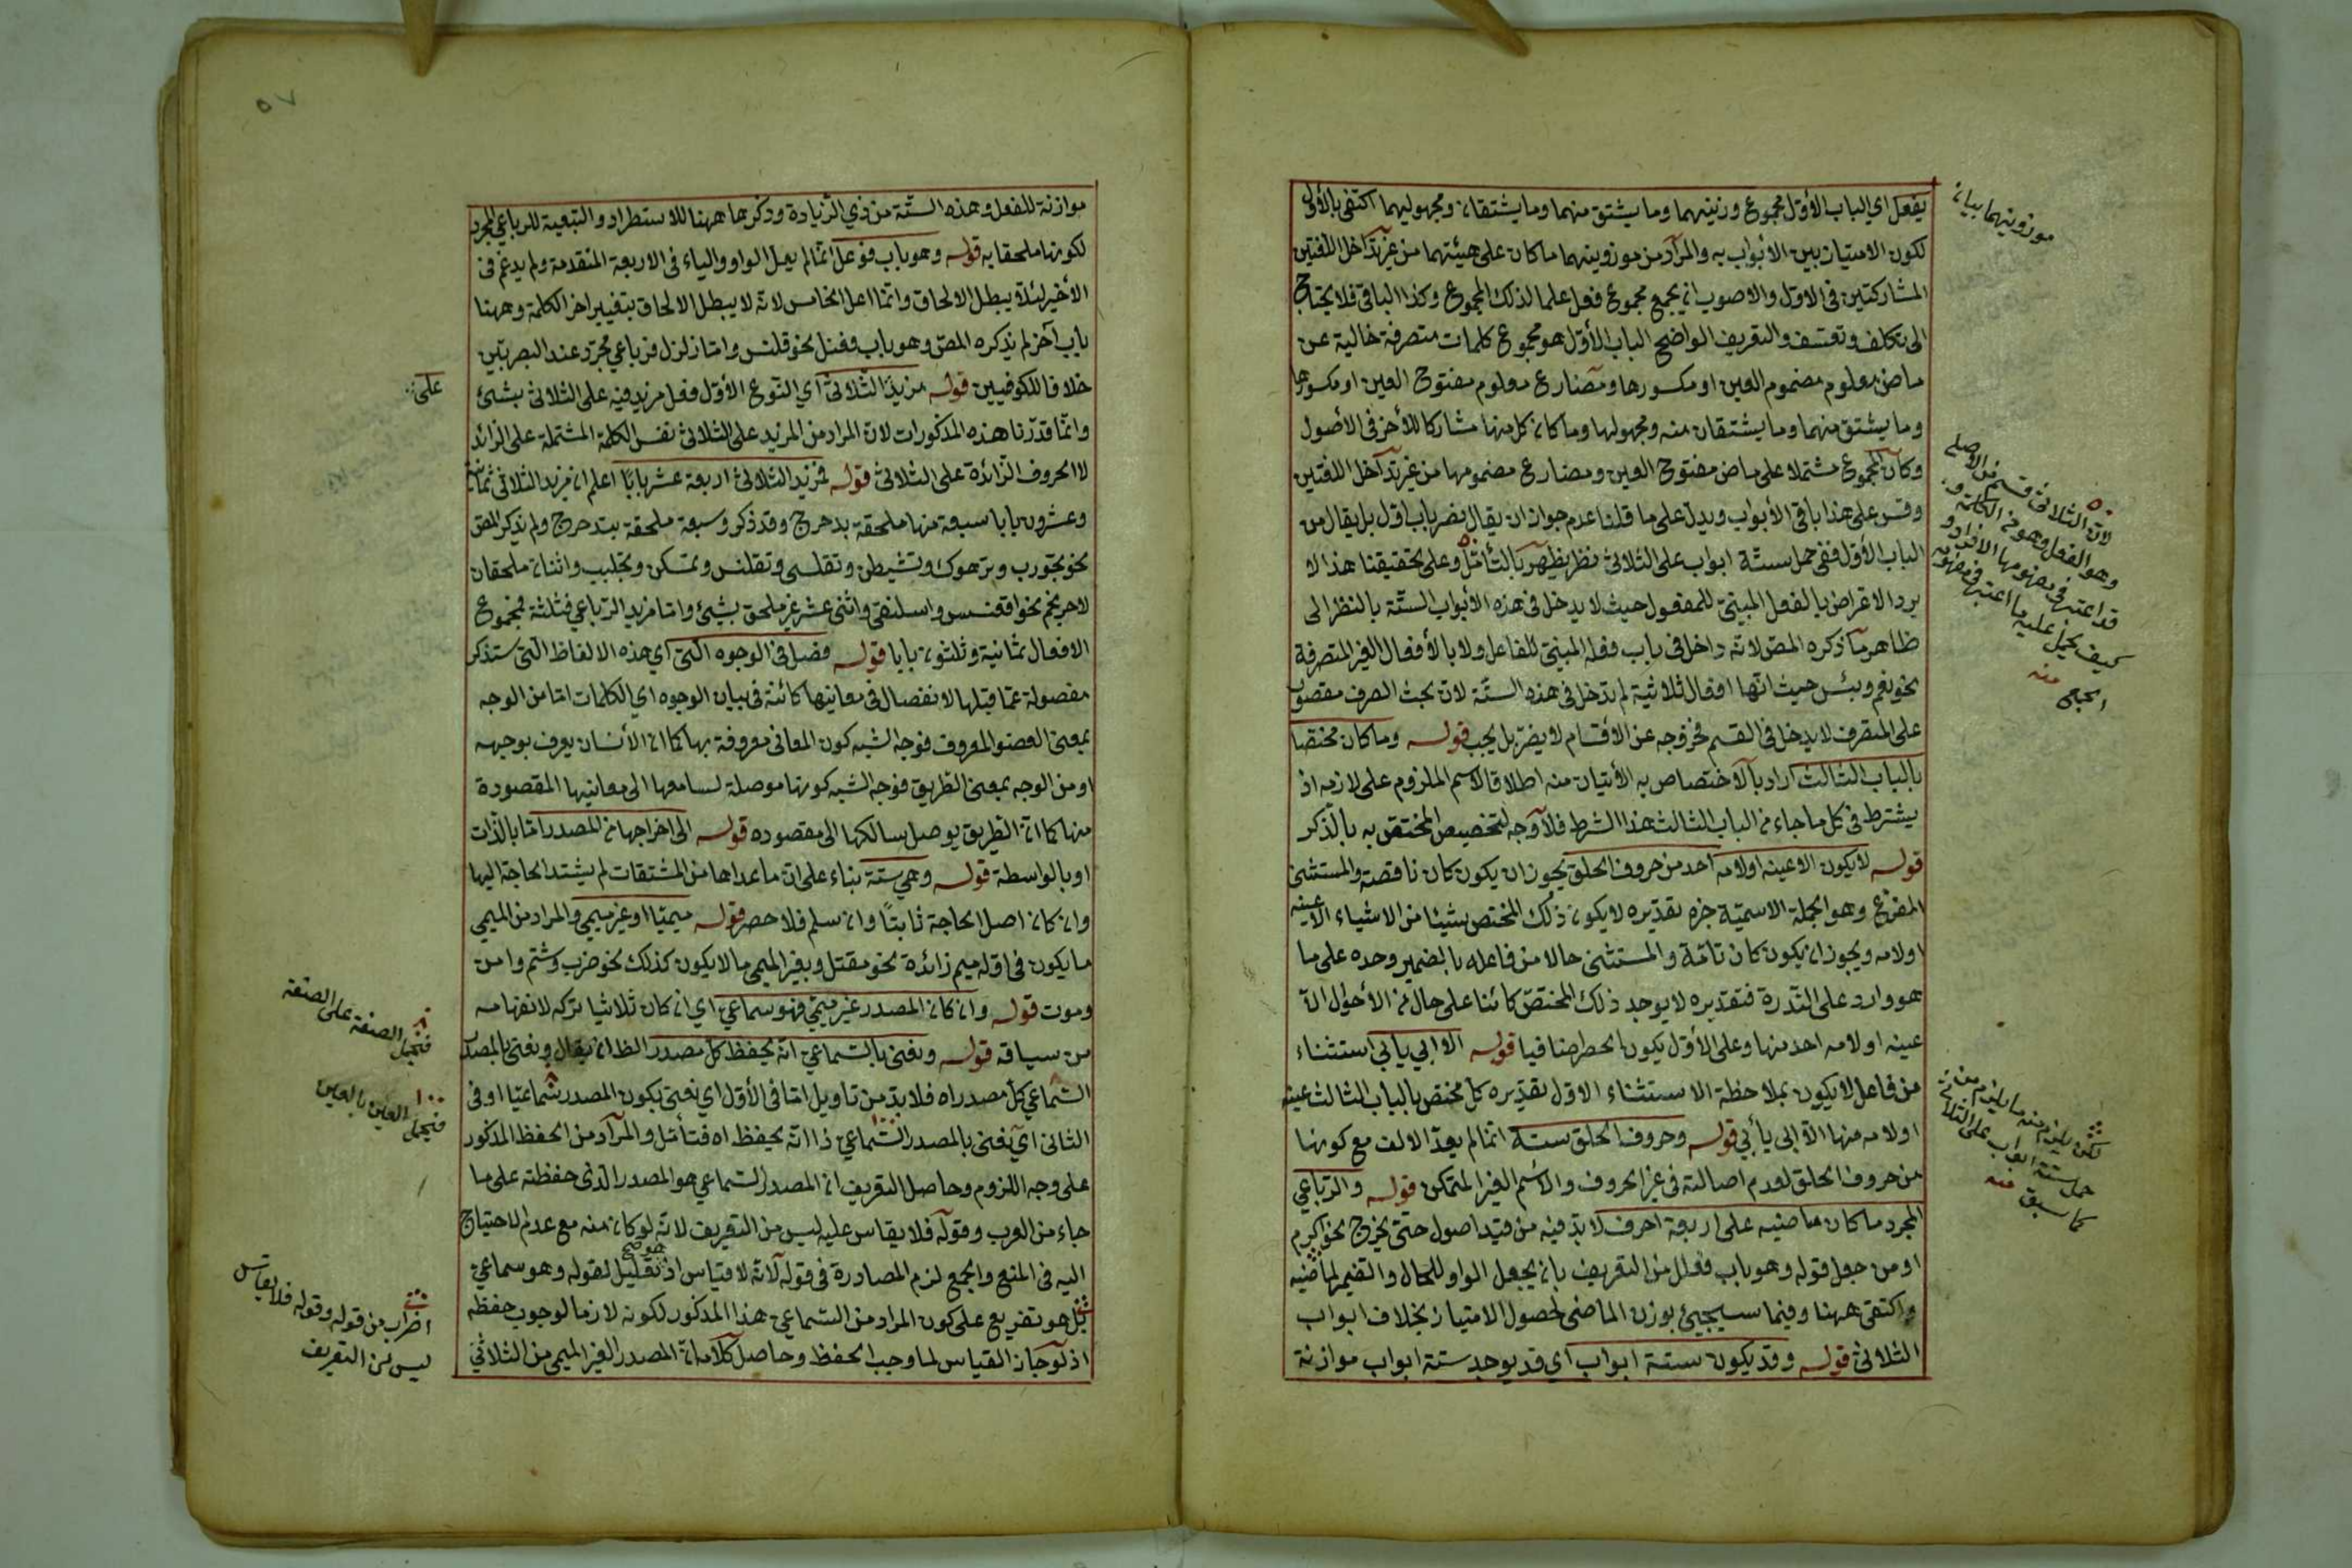 يفعل اي الباب الأوّل مجموع وزنيهما وما يشتق منهما وما يشتقان ومجهوليهما اكتفى بالأولى
لكون الامتياز بين الأبواب به والمراد من موزونيهما ما كان على هيئتهما من غير تداخل اللغتين
المشاركتين في الاول والاصوب ان يجمع مجموع فعل علما لذلك المجموع وكذا الباقي فلا يحتاج
الى تكلف وتعسف والتعريف الواضح الباب الأوّل هو مجموع كلمات متصرفة خالية عن
ماض معلوم مضموم العين او مكسورها ومضارع معلوم مفتوح العين او مكسورها
وما يشتق منهما وما يشتقان منه ومجهولها وما كان كل منها مشاركا للأخر في الأصول
وكان المجموع مشتملا على ماض مفتوح العين ومضارع مضمومها من غير تداخل اللغتين
وقس على هذا باقي الأبواب ويدل على ما قلنا عدم جواز ان يقال نصر باب اوّل بل يقال من
الباب الأوّل ففي حمل ستة ابواب على الثلاثي نظر يظهر بالتأمّل وعلى تحقيقنا هذا لا
يرد الاعتراض بالفعل المبنيّ للمفعول حيث لا يدخل في هذه الأبواب الستّة بالنظر الى
ظاهر ما ذكره المصّ لانه داخل في باب فعله المبنيّ للفاعل ولا بالأفعال الغير المتصرفة
نحو نعم وبئس حيث انّها افعال ثلاثية لم تدخل في هذه الستّة لانّ بحث الصرف مقصور
على المتصرف لا يدخل في القسم فخروجه عن الأقسام لا يضرّ بل يجب قوله وما كان مختصّا
بالباب الثالث اراد بالاختصاص به الأتيان منه اطلاقا لاسم الملزوم على لازمه اذ
يشترط في كل ما جاء من الباب الثالث هذا الشرط فلا وجه لتخصيص المختصّ به بالذّكر
قوله لا يكون الا عينه او لامه احد من حروف الحلق يجوز ان يكون كان ناقصة والمستثنى
المفرّغ وهو الجملة الاسميّة خبره تقديره لا يكون ذلك المختص بشيئا من الاشياء الا عينه
او لامه ويجوز ان يكون كان تامّة والمستثنى حالا من فاعله بالضمير وحده على ما
هو وارد على النّدرة فتقديره لا يوجد ذلك المختصّ كائنا على حال من الأحوال الا
عينه او لامه احد منها وعلى الأوّل يكون الحصر اضافيا قوله الا ابي يأبي استثناء
من فاعل لا يكون بملاحظة الاستثناء الاول تقديره كل مختص بالباب الثالث عينه
او لامه منها الّا ابي يأبي قوله وحروف الحلق ستة انما لم يعدّ الالف مع كونها
من حروف الحلق لعدم اصالته في غير الحروف والاسم الغير المتمكن قوله والرّباعي
المجرد ما كان ماضيه على اربعة احرف لا بدّ فيه من قيد اصول حتى يخرج نحو اكرم
او من جعل قوله وهو باب فعلل من التعريف بان يجعل الواو للحال والضمير لماضيه
واكتفى ههنا وفيما سيجيئ بوزن الماضي لحصول الامتياز بخلاف ابواب
الثلاثي قوله وقد يكون ستة ابواب اي قد يوجد ستة ابواب موازنة
موزونيهما بيان
لانّ الثلاثي قسم من الاصل
وهو الفعل وهو من الكلمة و
قد اعتبر في مفهومها الافراد و
كيف يحمل عليه ما اعتبر في مفهومه
الجمع منه
لكن يلزم منه ما يلزم من
حمل ستة ابواب على الثلاثي
كما سبق منه
٥٧
موازنة للفعل وهذه الستّة من ذي الزّيادة وذكرها ههنا للاستطراد والتبعية للرباعي المجرد
لكونها ملحقا به قوله وهو باب فوعل انّما لم يعلّ الواو والياء في الاربعة المتقدمة ولم يدغم في
الأخير لئلّا يبطل الالحاق وانّما اعلّ الخامس لانه لا يبطل الالحاق بتغيير اخر الكلمة وههنا
باب آخر لم يذكره المصّ وهو باب فعنل نحو قلنس وامّا زلزل فرباعي مجرّد عند البصريّين
خلافا للكوفيين قوله مزيد الثّلاثيّ اي النّوع الأوّل فعل مزيد فيه على الثلاثي بشئ
وانّما قدّرنا هذه المذكورات لانّ المراد من المزيد على الثلاثي نفس الكلمة المشتملة على الزائد
لا الحروف الزّائدة على الثلاثي قوله فمزيد الثّلاثيّ اربعة عشر بابًا اعلم ان مزيد الثلاثي ثمانية
وعشرون بابا سبعة منها ملحقة بدحرج وقد ذكر وسبعة ملحقة بتدحرج ولم يذكر المصّ
نحو تجورب وترهوك وتشيطن وتقلسى وتقلنس وتمسكن وتجلبب واثنان ملحقان
لاحرنجم نحو اقعنسس واسلنقى واثنى عشر غير ملحق بشيئ وامّا مزيد الرّباعي فثلثة فمجموع
الافعال ثمانية وثلثون بابا قوله فصل في الوجوه الّتي اي هذه الالفاظ الّتي ستذكر
مفصولة عمّا قبلها لانفصال في معانيها كائنة في بيان الوجوه اي الكلمات امّا من الوجه
بمعنى العضو المعروف فوجه الشبه كون المعاني معروفة بها كما ان الأنسان يعرف بوجهه
او من الوجه بمعنى الطّريق فوجه الشبه كونها موصلة لسامعها الى معانيها المقصودة
منها كما انّ الطّريق يوصل سالكها الى مقصوده قوله الى اخراجها من المصدر امّا بالذّات
او بالواسطة قوله وهي ستة بناء على انّ ما عداها من المشتقات لم يشتدّ الحاجة اليها
وان كان اصل الحاجة ثابتًا وان سلم فلا حصر قوله ميميّا او غير ميمي والمراد من الميمي
ما يكون في اوّله ميم زائدة نحو مقتل وبغير الميمي ما لا يكون كذلك نحو ضرب وشتم وامن
وموت قوله وان كان المصدر غير ميميّ فهو سماعي اي ان كان ثلاثيا تركه لانفهامه
من سياقه قوله ونعني بالسّماعي انه يحفظ كلّ مصدر الظ ان يقال ونعني بالمصدر
السّماعي كلّ مصدر اه فلا بدّ من تاويل امّا في الأوّل اي نعني بكون المصدر سماعيّا او في
الثاني اي نعني بالمصدر السّماعي ذا انّه يحفظ اه فتأمّل والمراد من الحفظ المذكور
على وجه اللزوم وحاصل التعريف ان المصدر السّماعي هو المصدر الّذي حفظته على ما
جاء من العرب وقوله فلا يقاس عليه ليس من التعريف لانّه لو كان منه مع عدم الاحتياج
اليه في المنع والجمع لزم المصادرة في قوله لانّه لا قياس اذ تقليل لقوله وهو سماعي
بل هو تفريع على كون المراد من السّماعي هذا المذكور لكونه لازما لوجوب حفظه
اذ لو جاز القياس لما وجب الحفظ وحاصل كلامه انّ المصدر الغير الميمي من الثلاثيّ
على
فتحمل الصفة على الصفة
فتحمل العين بالعين
اضراب من قوله وقوله فلا يقاس
ليس من التعريف